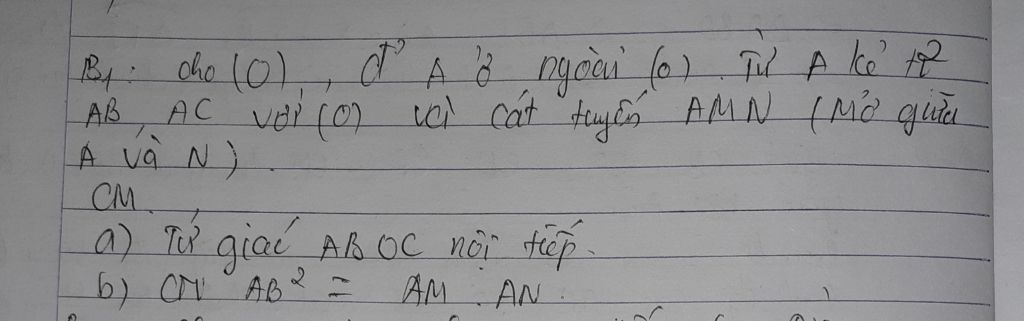 B1: cho (O), đ' A ở ngoài (O). Từ A kẻ t²
AB, AC với (O) và cát tuyến AMN (M ở giữa
A và N).
CM.
a) Tứ giác ABOC nội tiếp.
b) CM AB² = AM . AN.